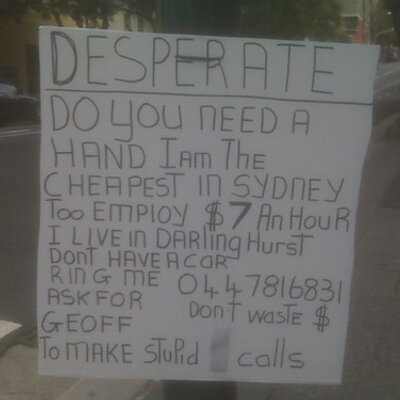 DESPERATE
DO YOU NEED A
HAND I am The
CHEAPEST IN SYDNEY
Too EMPLOY $7 An HouR
I LIVE in DARLing HuRST
DonT HAVE A CAR
RING ME 0447816831
ASK FOR DonT wASTE $
GEOFF
To MAKE STuPid calls